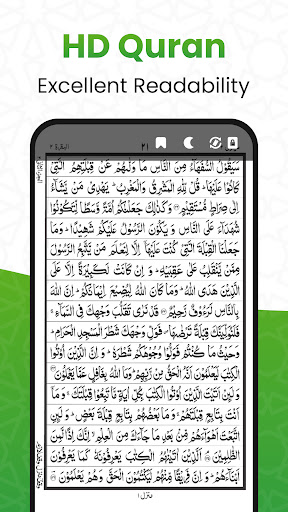 HD Quran
Excellent Readability
البقرة ٢
٢١
سَيَقُوْلُ السُّفَهَآءُ مِنَ النَّاسِ مَا وَلّٰىهُمْ عَنْ قِبْلَتِهِمُ الَّتِيْ
كَانُوْا عَلَيْهَا ؕ قُلْ لِّلّٰهِ الْمَشْرِقُ وَالْمَغْرِبُ ؕ يَهْدِيْ مَنْ يَّشَآءُ
اِلٰى صِرَاطٍ مُّسْتَقِيْمٍ ۝ وَكَذٰلِكَ جَعَلْنٰكُمْ اُمَّةً وَّسَطًا لِّتَكُوْنُوْا
شُهَدَآءَ عَلَى النَّاسِ وَيَكُوْنَ الرَّسُوْلُ عَلَيْكُمْ شَهِيْدًا ؕ وَمَا
جَعَلْنَا الْقِبْلَةَ الَّتِيْ كُنْتَ عَلَيْهَاۤ اِلَّا لِنَعْلَمَ مَنْ يَّتَّبِعُ الرَّسُوْلَ
مِمَّنْ يَّنْقَلِبُ عَلٰى عَقِبَيْهِ ؕ وَ اِنْ كَانَتْ لَكَبِيْرَةً اِلَّا عَلَى
الَّذِيْنَ هَدَى اللّٰهُ ؕ وَمَا كَانَ اللّٰهُ لِيُضِيْعَ اِيْمَانَكُمْ ؕ اِنَّ اللّٰهَ
بِالنَّاسِ لَرَءُوْفٌ رَّحِيْمٌ ۝ قَدْ نَرٰى تَقَلُّبَ وَجْهِكَ فِي السَّمَآءِ ۚ
فَلَنُوَلِّيَنَّكَ قِبْلَةً تَرْضٰىهَا ۪ فَوَلِّ وَجْهَكَ شَطْرَ الْمَسْجِدِ الْحَرَامِ ؕ
وَحَيْثُ مَا كُنْتُمْ فَوَلُّوْا وُجُوْهَكُمْ شَطْرَهٗ ؕ وَ اِنَّ الَّذِيْنَ اُوْتُوا
الْكِتٰبَ لَيَعْلَمُوْنَ اَنَّهُ الْحَقُّ مِنْ رَّبِّهِمْ ؕ وَمَا اللّٰهُ بِغَافِلٍ عَمَّا يَعْمَلُوْنَ ۝
وَلَئِنْ اَتَيْتَ الَّذِيْنَ اُوْتُوا الْكِتٰبَ بِكُلِّ اٰيَةٍ مَّا تَبِعُوْا قِبْلَتَكَ ۚ وَمَاۤ
اَنْتَ بِتَابِعٍ قِبْلَتَهُمْ ۚ وَمَا بَعْضُهُمْ بِتَابِعٍ قِبْلَةَ بَعْضٍ ؕ وَلَئِنِ
اتَّبَعْتَ اَهْوَآءَهُمْ مِّنْ بَعْدِ مَا جَآءَكَ مِنَ الْعِلْمِ ۙ اِنَّكَ اِذًا لَّمِنَ
الظّٰلِمِيْنَ ۝ اَلَّذِيْنَ اٰتَيْنٰهُمُ الْكِتٰبَ يَعْرِفُوْنَهٗ كَمَا يَعْرِفُوْنَ
اَبْنَآءَهُمْ ؕ وَ اِنَّ فَرِيْقًا مِّنْهُمْ لَيَكْتُمُوْنَ الْحَقَّ وَهُمْ يَعْلَمُوْنَ ۝
منزل ١